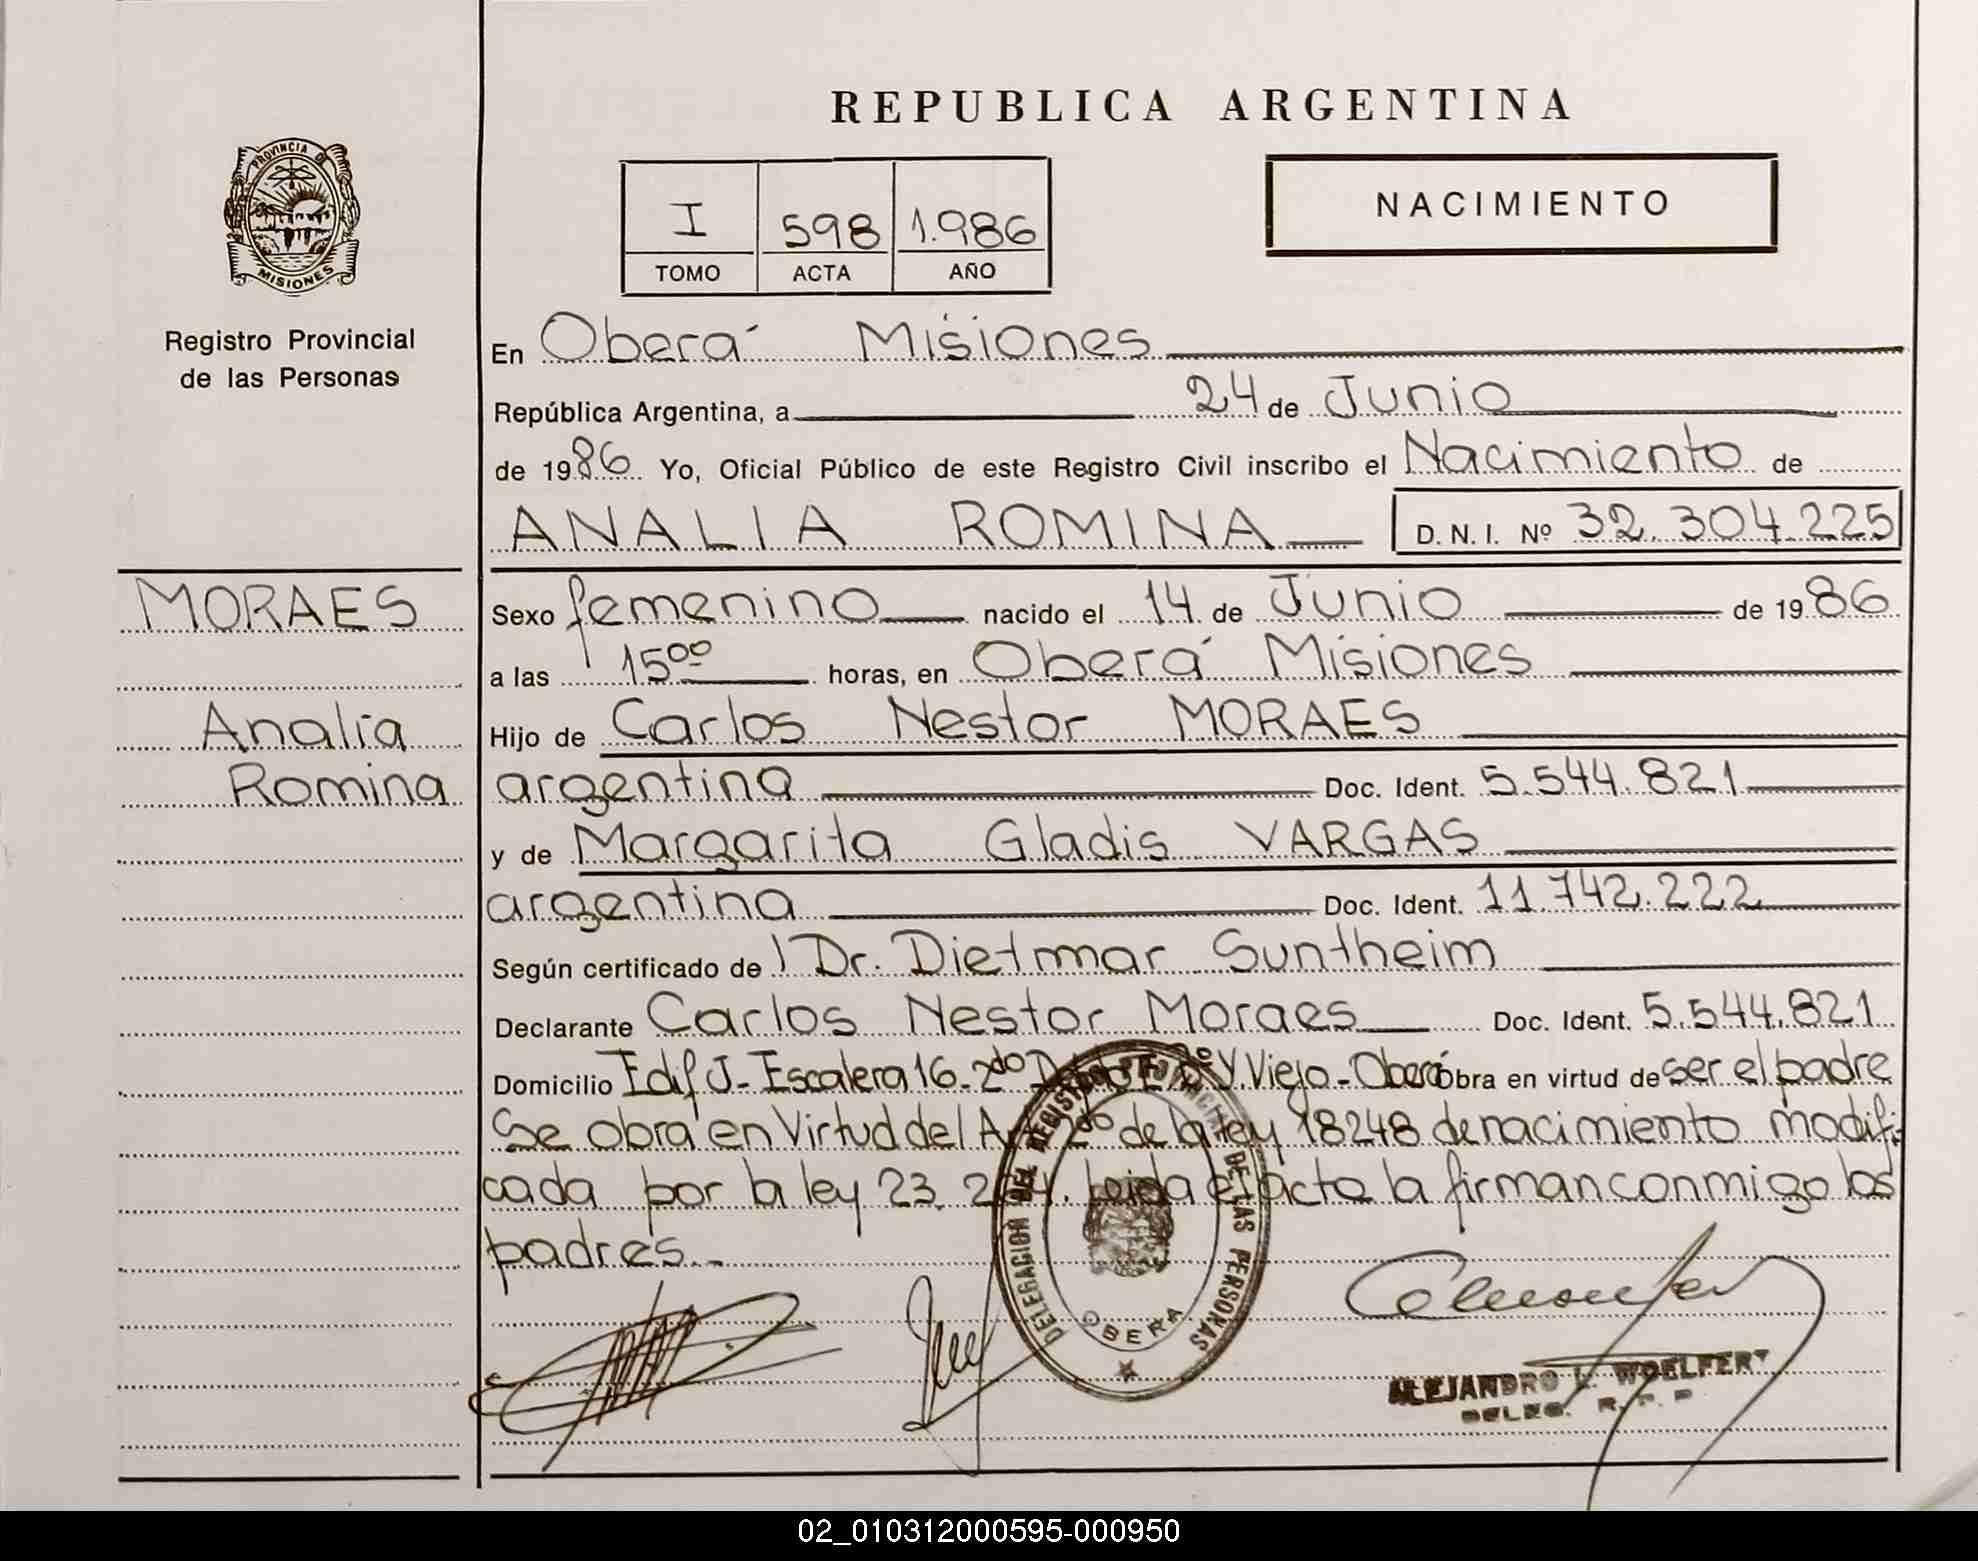 REPUBLICA ARGENTINA
PROVINCIA D
MISIONES
Registro Provincial
de las Personas
I 598 1.986
TOMO ACTA AÑO
NACIMIENTO
En Oberá Misiones
República Argentina, a 24 de Junio
de 1986 Yo, Oficial Público de este Registro Civil inscribo el Nacimiento de
ANALIA ROMINA D. N. I. Nº 32.304.225
MORAES
Analía
Romina
Sexo femenino nacido el 14 de Junio de 1986
a las 15⁰⁰ horas, en Oberá Misiones
Hijo de Carlos Nestor MORAES
argentina Doc. Ident. 5.544.821
y de Margarita Gladis VARGAS
argentina Doc. Ident. 11.742.222
Según certificado de Dr. Dietmar Suntheim
Declarante Carlos Nestor Moraes Doc. Ident. 5.544.821
Domicilio Edif J- Escalera 16- 2do Y. Viejo - Oberá Obra en virtud de ser el padre
Se obra en Virtud del Art 2do de la ley 18248 de nacimiento modifi
cada por la ley 23. Leida el acta la firman conmigo los
padres.-
DELEGACION DEL REGISTRO PROVINCIAL DE LAS PERSONAS
OBERA
ALEJANDRO L. WOELFERT
DELEG. R. P. P
02_010312000595-000950